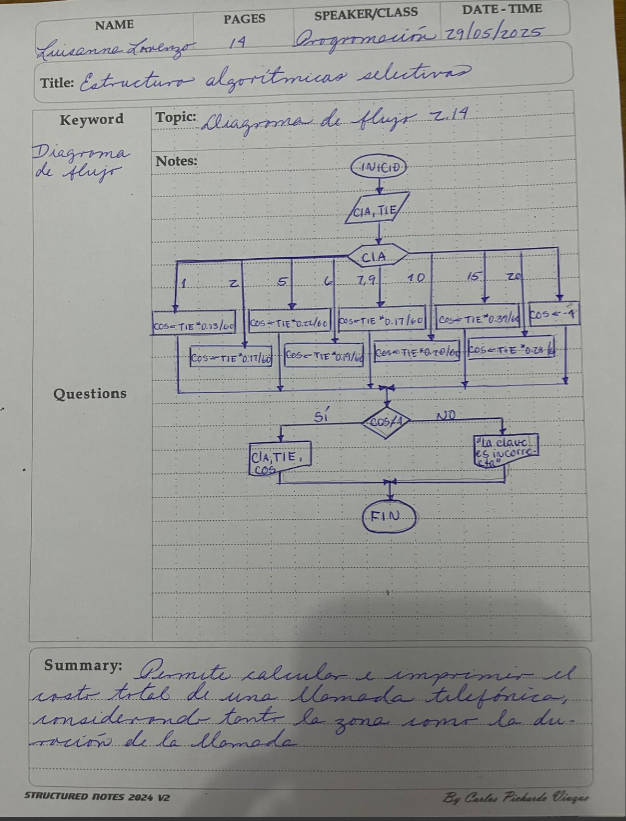 NAME PAGES SPEAKER/CLASS DATE - TIME
Luisanna Lorenzo 14 Programación 29/05/2025
Title: Estructura algorítmicas selectivas
Keyword
Topic: Diagrama de flujo 2.14
Diagrama
de flujo
Notes:
INICIO
CIA, TIE
CIA
1 2 5 6 7,9 10 15 20
COS←TIE*0.13/60 COS←TIE*0.22/60 COS←TIE*0.17/60 COS←TIE*0.39/60 COS←-1
COS←TIE*0.11/60 COS←TIE*0.19/60 COS←TIE*0.20/60 COS←TIE*0.28/60
Questions
SÍ NO
CIA, TIE,
COS
"La clave
es incorre-
cta"
FIN
Summary: Permite calcular e imprimir el
costo total de una llamada telefónica,
considerando tanto la zona como la du-
ración de la llamada
STRUCTURED NOTES 2024 V2 By Carlos Pichardo Viuque